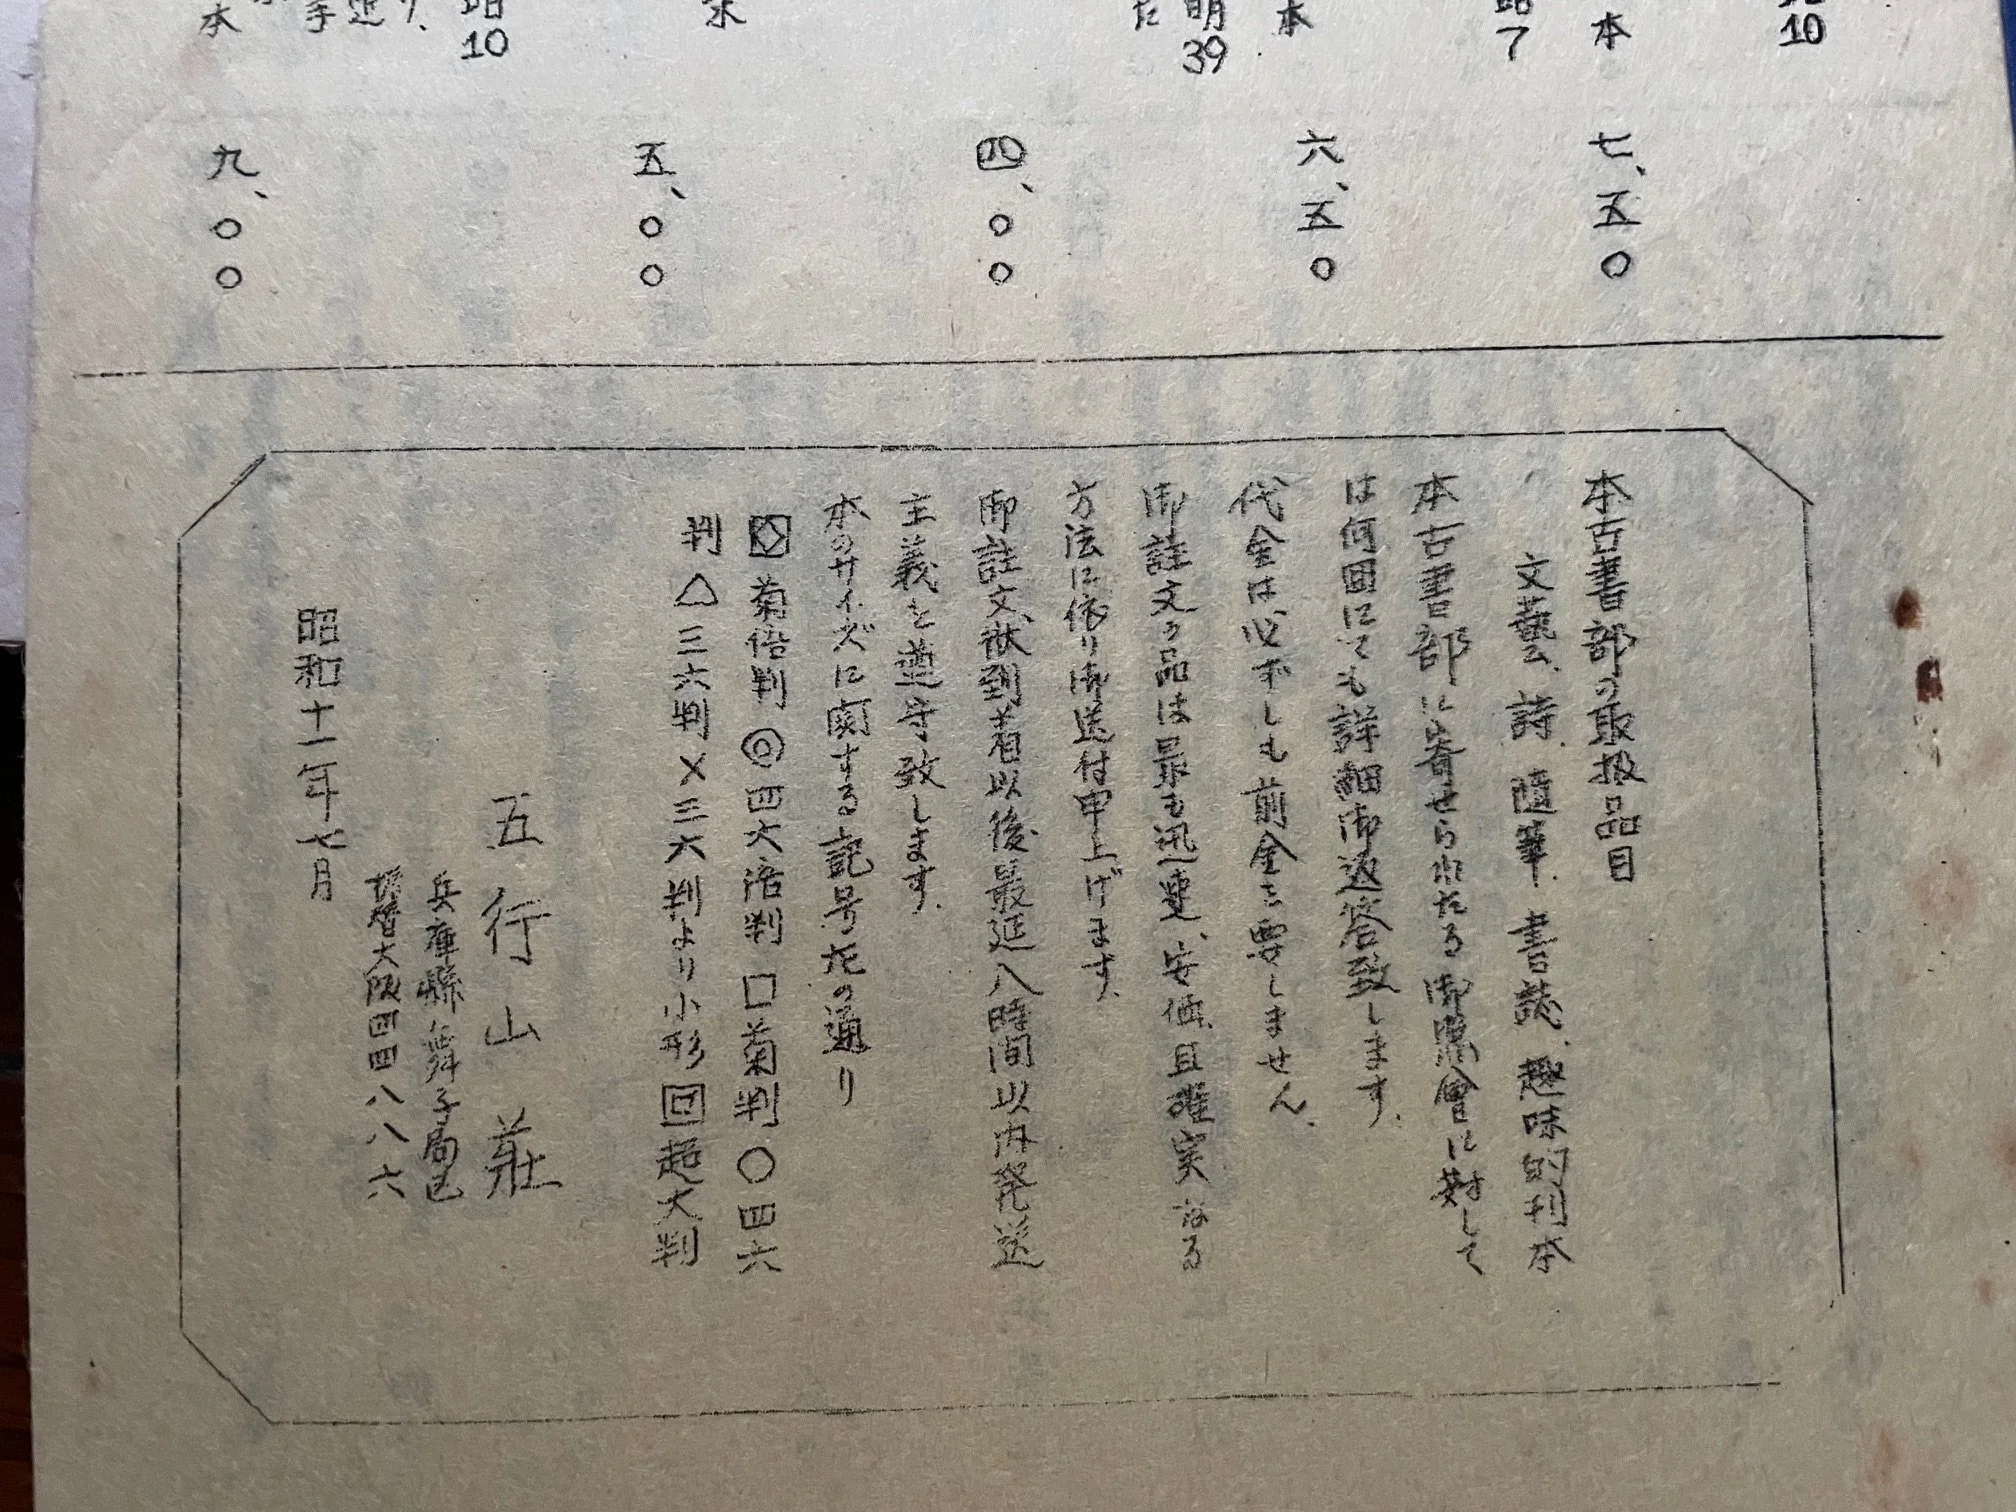 昭10
本
昭7
本
明39
た
本
昭10
本
七、五〇
六、五〇
四、〇〇
五、〇〇
九、〇〇
本古書部の取扱品目
文藝、詩、随筆、書誌、趣味的刊本
本古書部に寄せられたる御照會に対して
は何囬にても詳細御返答致します。
代金は必ずしも前金を要しません。
御註文の品は最も迅速、安価、且確実なる
方法に依り御送付申上げます。
御註文状到着以後最延八時間以内発送
主義を遵守致します。
本のサイズに関する記号左の通り
菊倍判 ◎四六倍判 □菊判 ○四六
判 △三六判 ×三六判より小形 回超大判
五行山荘
兵庫縣舞子局区
振替大阪四四八八六
昭和十一年七月